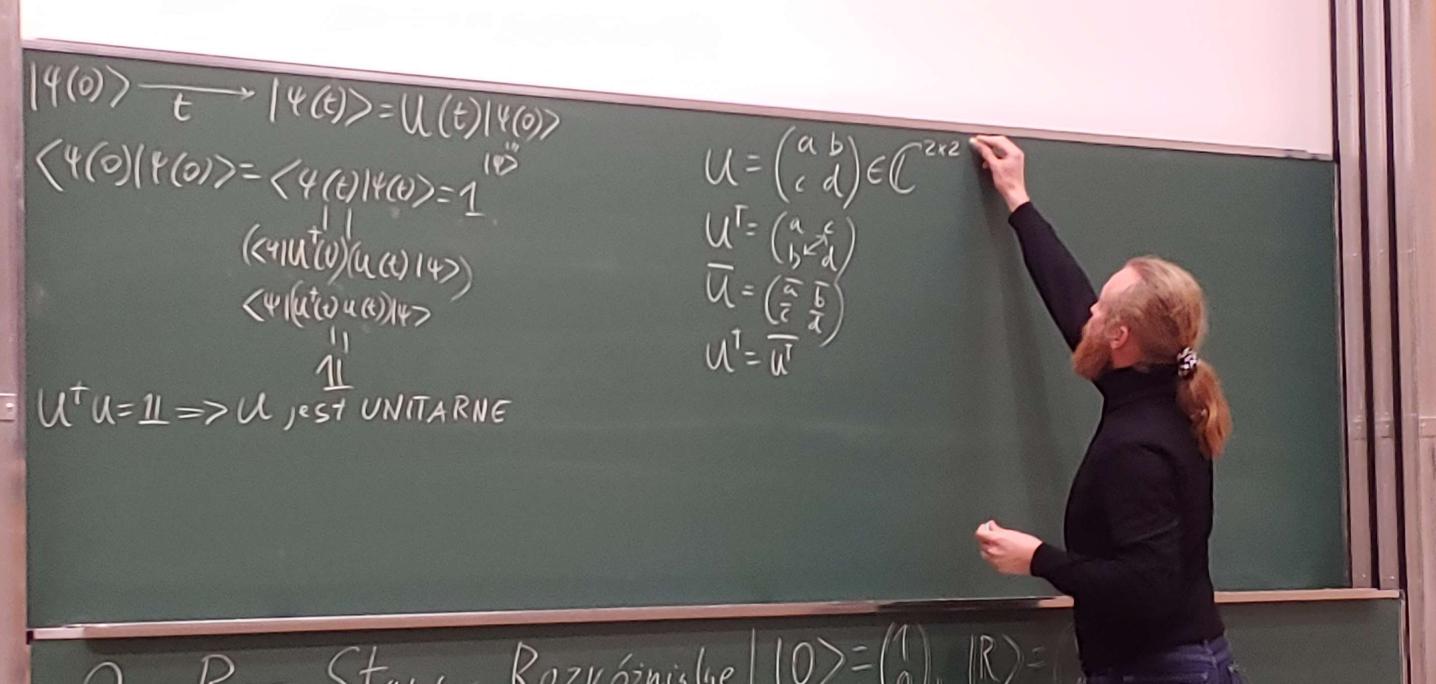 |Ψ(0)⟩ ⟶ |Ψ(t)⟩ = U(t)|Ψ(0)⟩
t
|Ψ⟩
⟨Ψ(0)|Ψ(0)⟩ = ⟨Ψ(t)|Ψ(t)⟩ = 1
(⟨Ψ|U†(t))(U(t)|Ψ⟩)
⟨Ψ|(U†(t)U(t))|Ψ⟩
𝟙
U†U = 𝟙 => U jest UNITARNE
U = (a b
c d) ∈ ℂ²ˣ²
Uᵀ = (a c
b d)
U̅ = (a̅ b̅
c̅ d̅)
U† = U̅ᵀ
Rozróżnialne | |0⟩ = (1
0), |R⟩ =